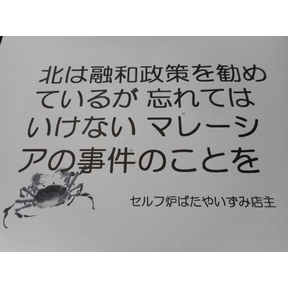 北は融和政策を勧め
ているが 忘れては
いけない マレーシ
アの事件のことを
セルフ炉ばたやいずみ店主